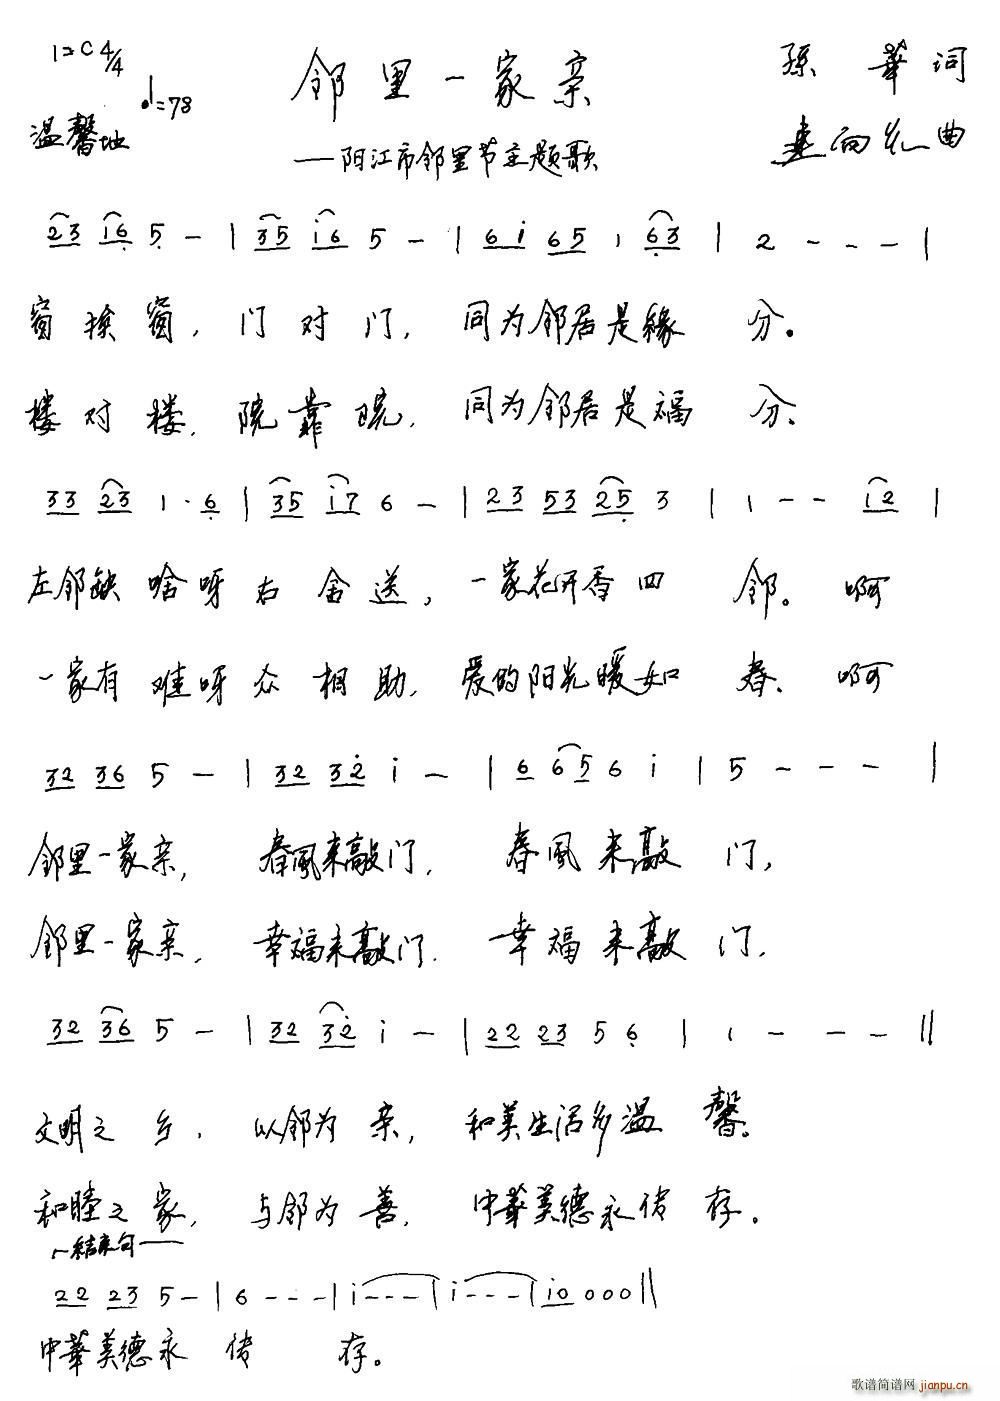 1=C 4/4
♩=78
温馨地
邻里一家亲
孫華词
——阳江市邻里节主题歌
向 曲
23 i6 5 - | 35 i6 5 - | 6i 65 1 63 | 2 - - - |
窗挨窗,门对门,同为邻居是緣分。
楼对楼,院靠院,同为邻居是福分。
33 23 1· 6 | 35 i7 6 - | 23 53 25 3 | 1 - - i2 |
左邻缺啥呀右舍送,一家花开香四邻。啊
一家有难呀众相助,爱的阳光暖如春。啊
32 36 5 - | 32 32 i - | 6 65 6 i | 5 - - - |
邻里一家亲,春風来敲门,春風来敲门,
邻里一家亲,幸福来敲门,幸福来敲门,
32 36 5 - | 32 32 i - | 22 23 5 6 | 1 - - - ||
文明之乡,以邻为亲,和美生活多温馨。
和睦之家,与邻为善,中華美德永传存。
结束句
22 23 5 - | 6 - - - | i - - - | i - - - | i0 0 0 0 ||
中華美德永传存。
歌谱简谱网 jianpu.cn